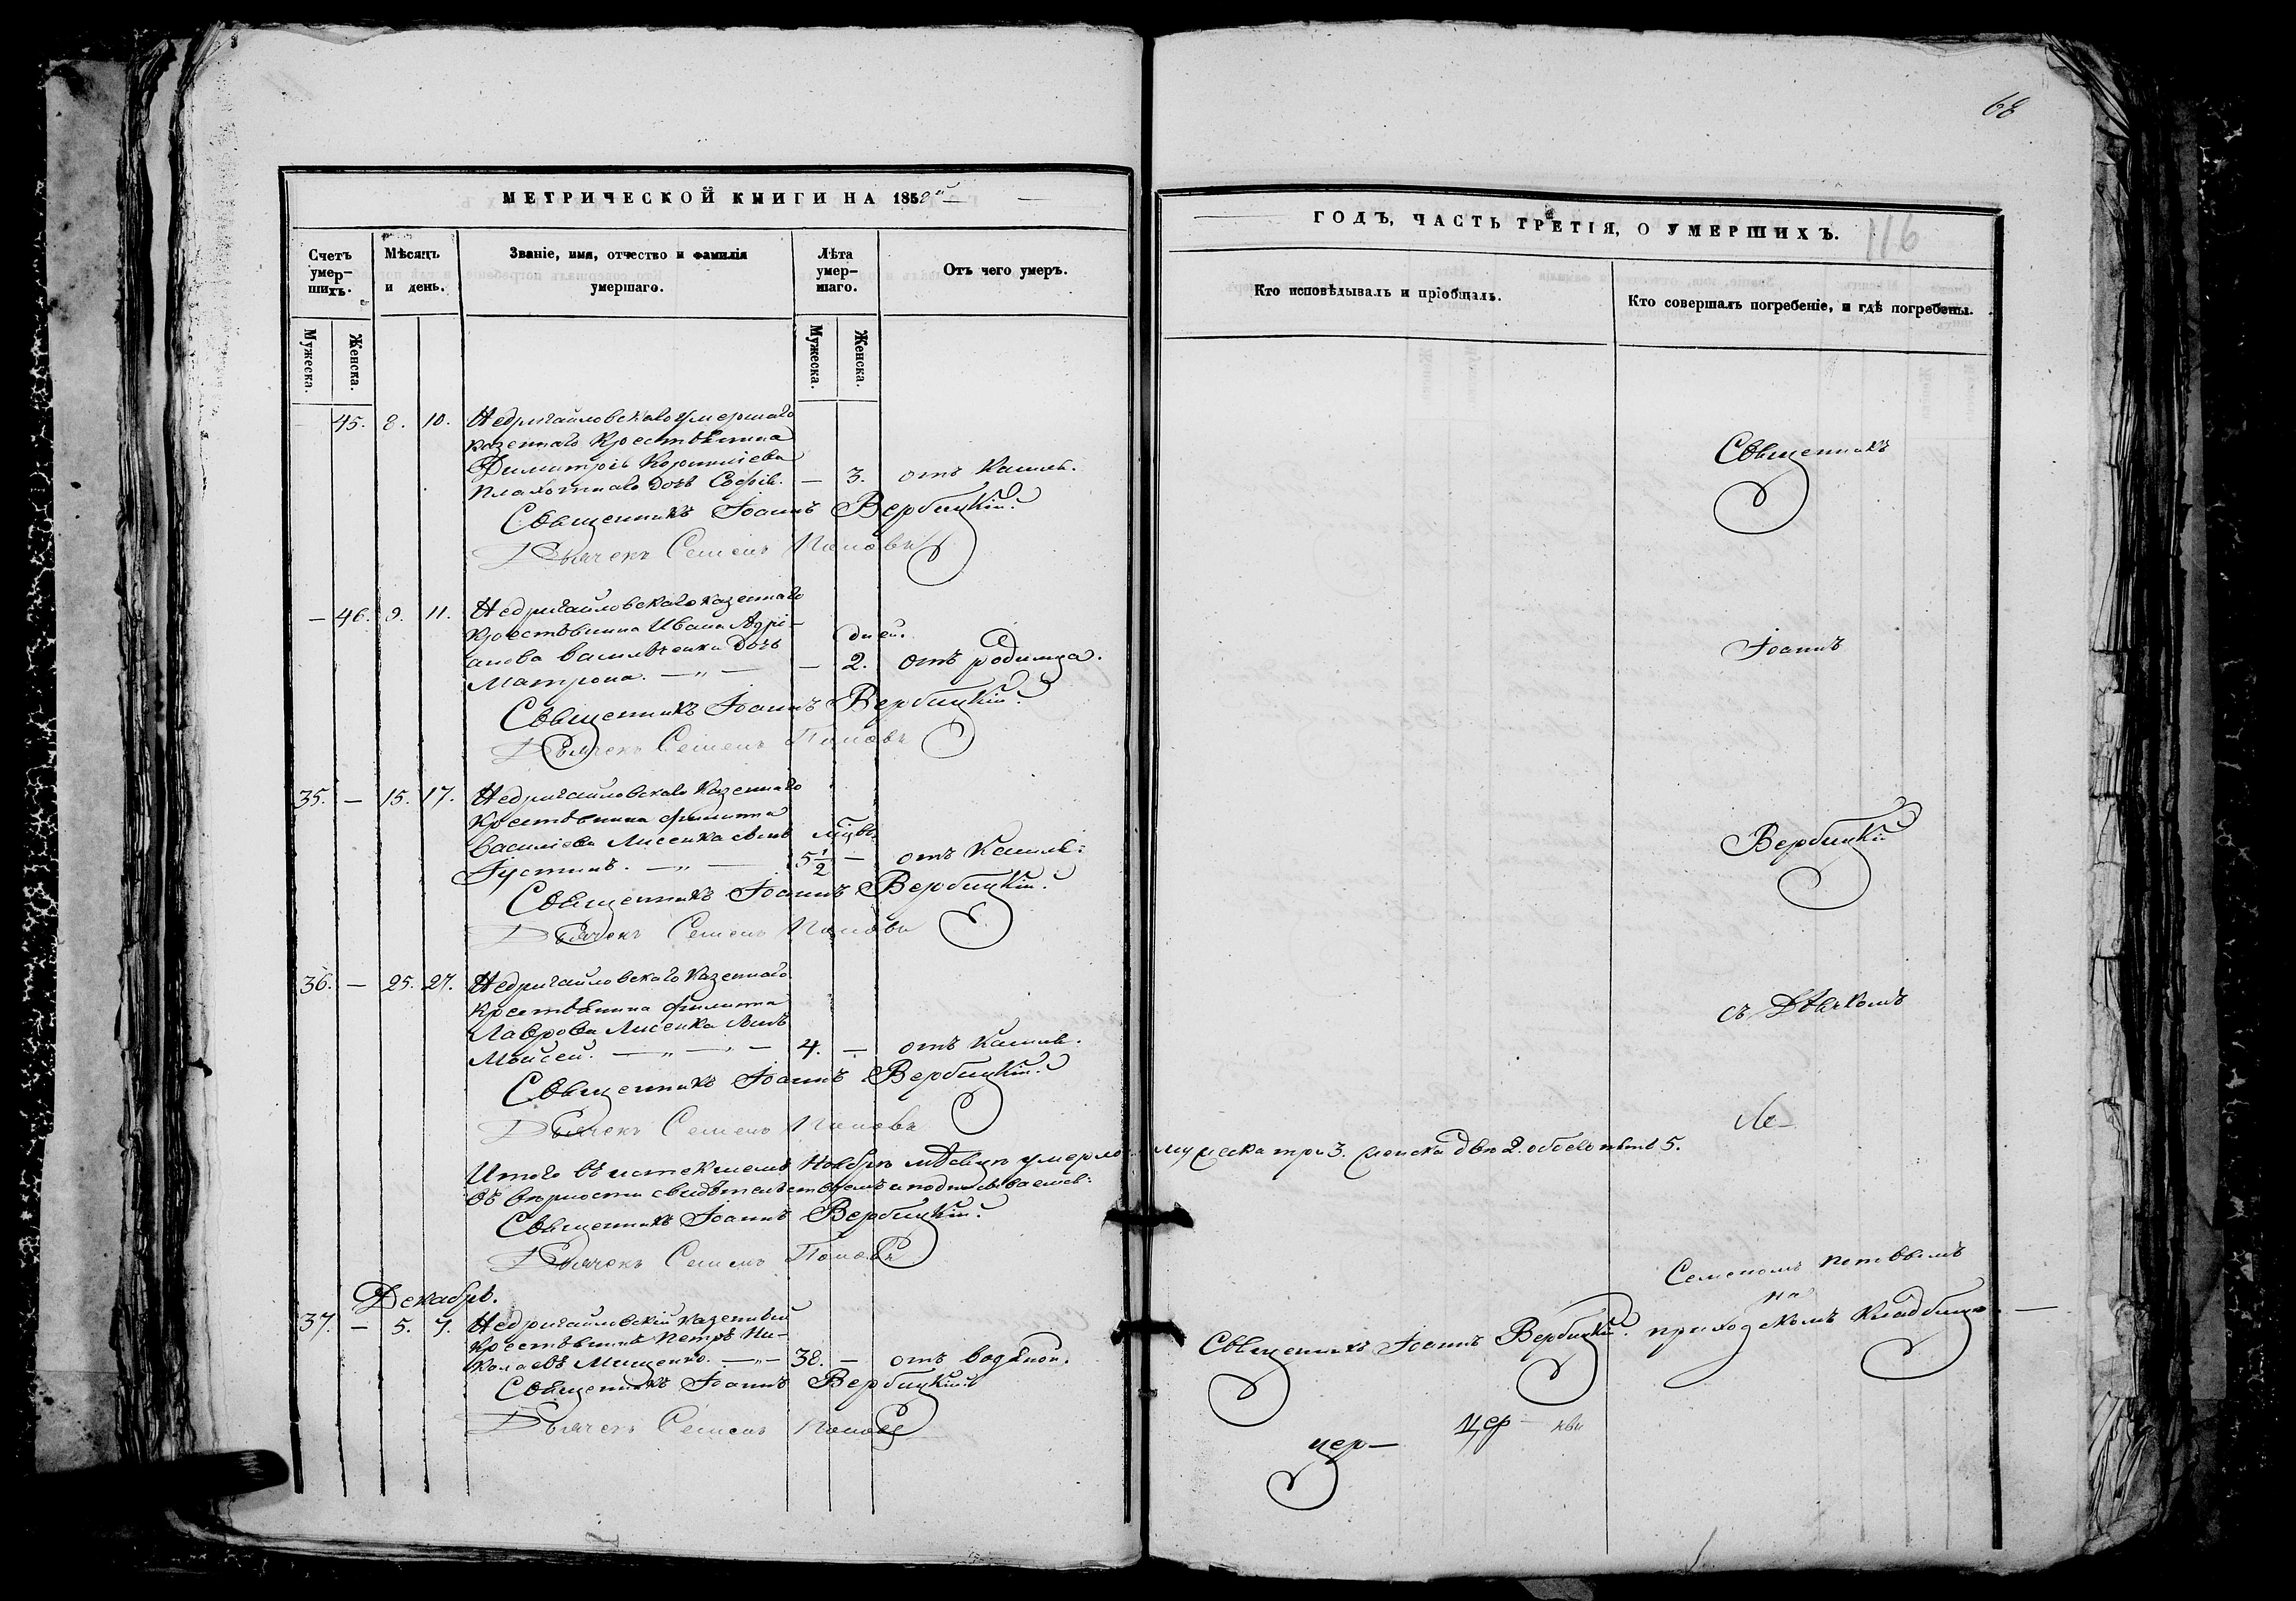 68
МЕТРИЧЕСКОЙ КНИГИ НА 185
Счетъ умер-шихъ.
Мѣсяцъ и день.
Званіе, имя, отчество и фамилія умершаго.
Лѣта умер-шаго.
Отъ чего умеръ.
Мужеска.
Женска.
Мужеска.
Женска.
45. 8. 10. Недригайловскаго умершаго
казеннаго Крестьянина
Димитрія Корниліева
Плахотнаго дочь Софія. — 3. отъ Кашля.
Священникъ Іоаннъ Вербицкій.
Дьячекъ Семенъ Поповъ
— 46. 9. 11. Недригайловскаго казеннаго
Крестьянина Ивана Адрі-
анова Васильченка дочь дней.
Матрона. — „ — — 2. отъ родимца.
Священникъ Іоаннъ Вербицкій.
Дьячекъ Семенъ Поповъ
35. — 15. 17. Недригайловскаго Казеннаго
Крестьянина Филиппа
Василіева Лисенка сынъ мцвъ
Іустинъ. — „ — 5 1/2 — отъ Кашля.
Священникъ Іоаннъ Вербицкій.
Дьячекъ Семенъ Поповъ
36. — 25. 27. Недригайловскаго Казеннаго
Крестьянина Филиппа
Лаврова Лисенка сынъ
Мойсей. — „ — 4. — отъ Кашля.
Священникъ Іоаннъ Вербицкій.
Дьячекъ Семенъ Поповъ
Итого въ истекшемъ Ноябрѣ мѣсяцѣ умерло мужеска три 3. женска двѣ 2. обоего пять 5.
въ вѣрности свидѣтельствуемъ и подписываемся:
Священникъ Іоаннъ Вербицкій.
Дьячекъ Семенъ Поповъ
Декабрь.
37. — 5. 7. Недригайловскій казенный
Крестьянинъ Петръ Ни-
колаевъ Мищенко. — „ — 38. — отъ водяной.
Священникъ Іоаннъ Вербицкій
Дьячекъ Семенъ Поповъ
ГОДЪ, ЧАСТЬ ТРЕТІЯ, О УМЕРШИХЪ.
116
Кто исповѣдывалъ и пріобщалъ.
Кто совершалъ погребеніе, и гдѣ погребены.
Священникъ
Іоаннъ
Вербицкій
съ Дьячкомъ
Се-
Семеномъ Поповымъ
на
Священникъ Іоаннъ Вербицкій. приходскомъ Кладбищѣ. —
цер— цер— кви